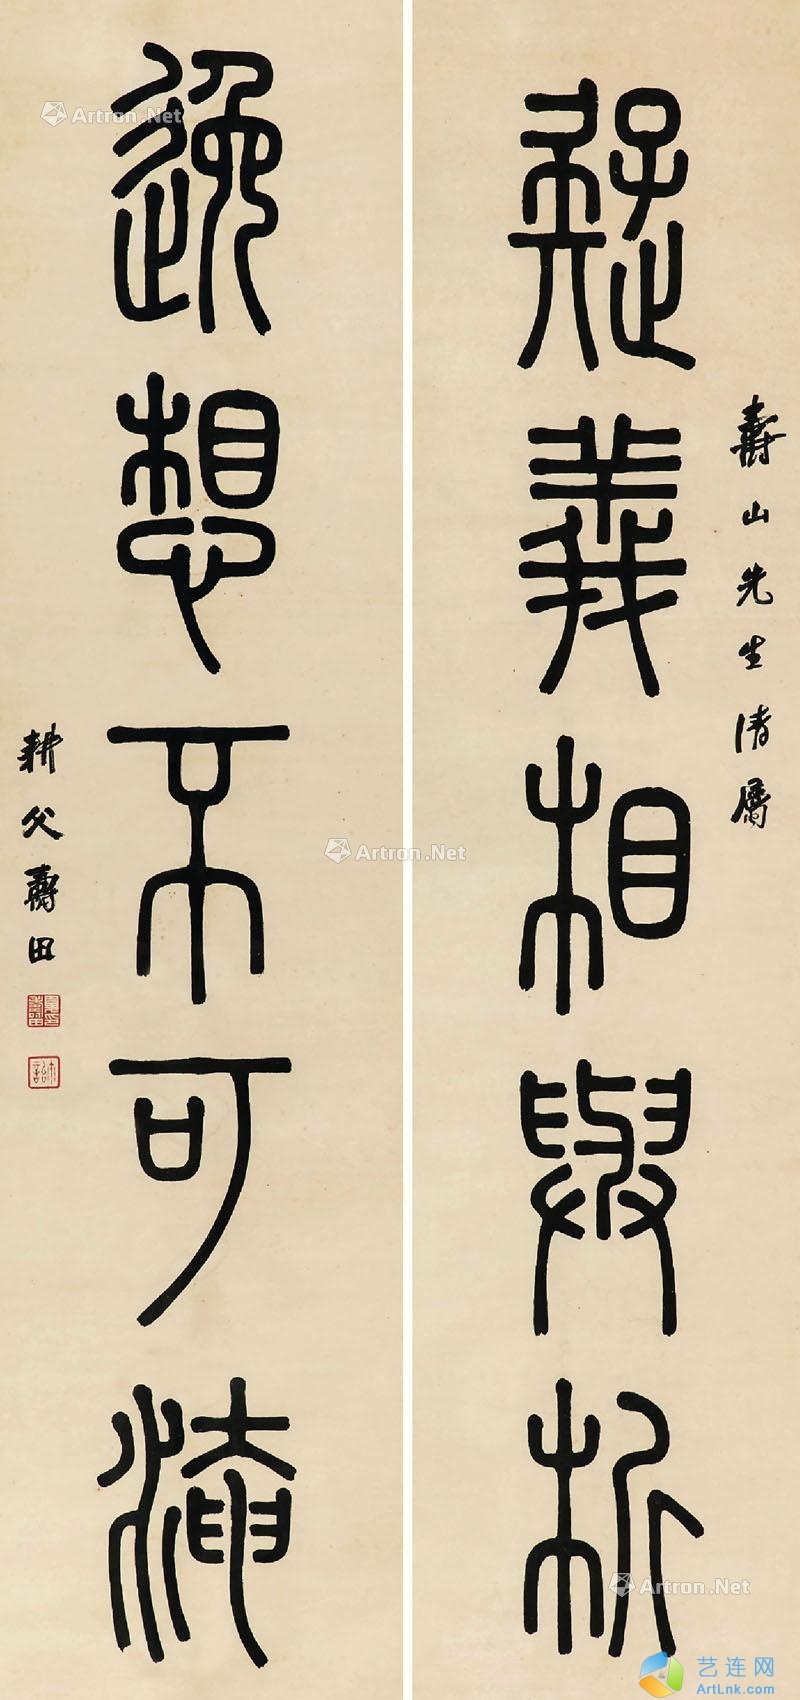 壽山先生清屬
疑義相與析
逸想不可淹
耕父壽田
Artron.Net
Artron.Net
Artron.Net
Artron.Net
艺连网
ArtLnk.com